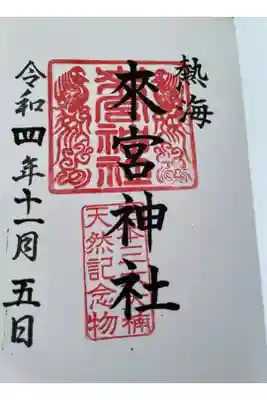 熱海
來宮神社
來宮神社
天然記念物
令和四年十一月五日